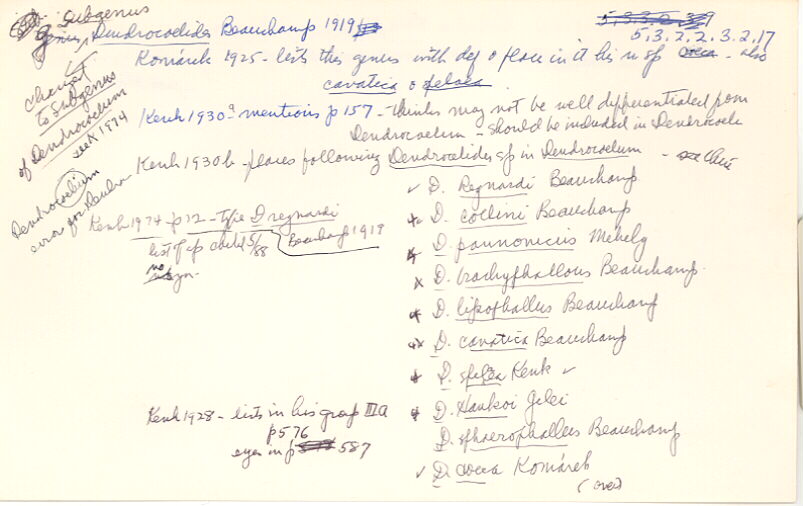 Subgenus
Genus Dendrocoelides Beauchamp 1919
5,3,2,2,3,2,17
Komárek 1925 - lists this genus with def & place in it his n sp - also
cavatica & spelaea
Changed
to Subgenus
of Dendrocoelum
Kenk 1974
Kenk 1930a mentions p 157 - thinks may not be well differentiated from
Dendrocoelum - should be included in Dendrocoel
Kenk 1930b - places following Dendrocoelides sp in Dendrocoelum - see
Dendrocoelium
error for Dendro
Kenk 1974 - p 12 - type D regnardi
Beauchamp 1919
list of sp 5/88
no syn.
D. Regnardi Beauchamp
D. collini Beauchamp
D. pannonicus Mehely
D. brachyphallus Beauchamp
D. lipophallus Beauchamp
D. cavatica Beauchamp
D. spelea Kenk
D. Hankoi Gelei
D. sphaerophallus Beauchamp
D. Komárek
(over)
Kenk 1928 - lists in his group IIIa
p 576
eyes in p 587